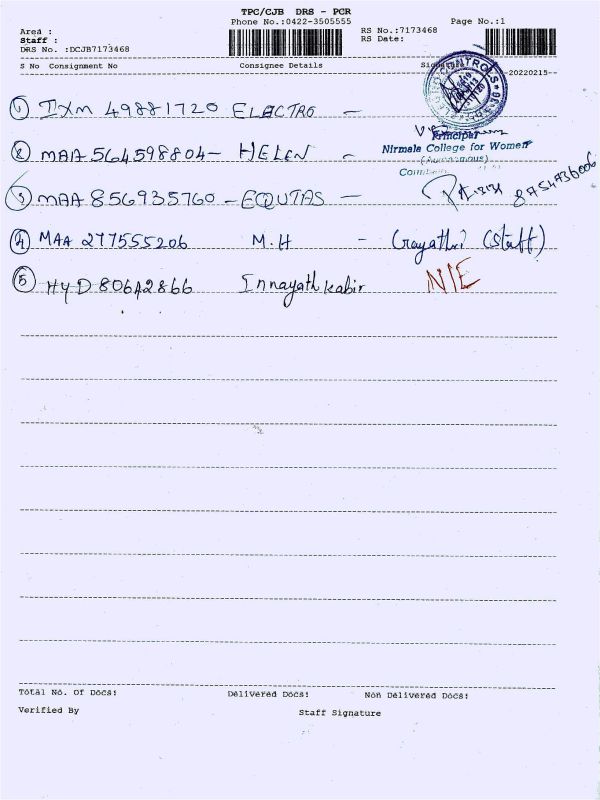 TPC/CJB DRS - PCR
Phone No.:0422-3505555
Page No.:1
Area :
Staff :
DRS No. :DCJB7173468
RS No.:7173468
RS Date:
S No Consignment No Consignee Details
20220215
1 IXM 49881720 ELECTRO -
Principal
Nirmala College for Women
(Autonomous)
2 MAA 564598804 - HELEN -
3 MAA 856935760 - EQUTAS -
4 MAA 277555206 M.H - Gayathri (Staff)
5 HYD 806A2866 Innayath kabir NIE
Total No. Of Docs: Delivered Docs: Non Delivered Docs:
Verified By Staff Signature